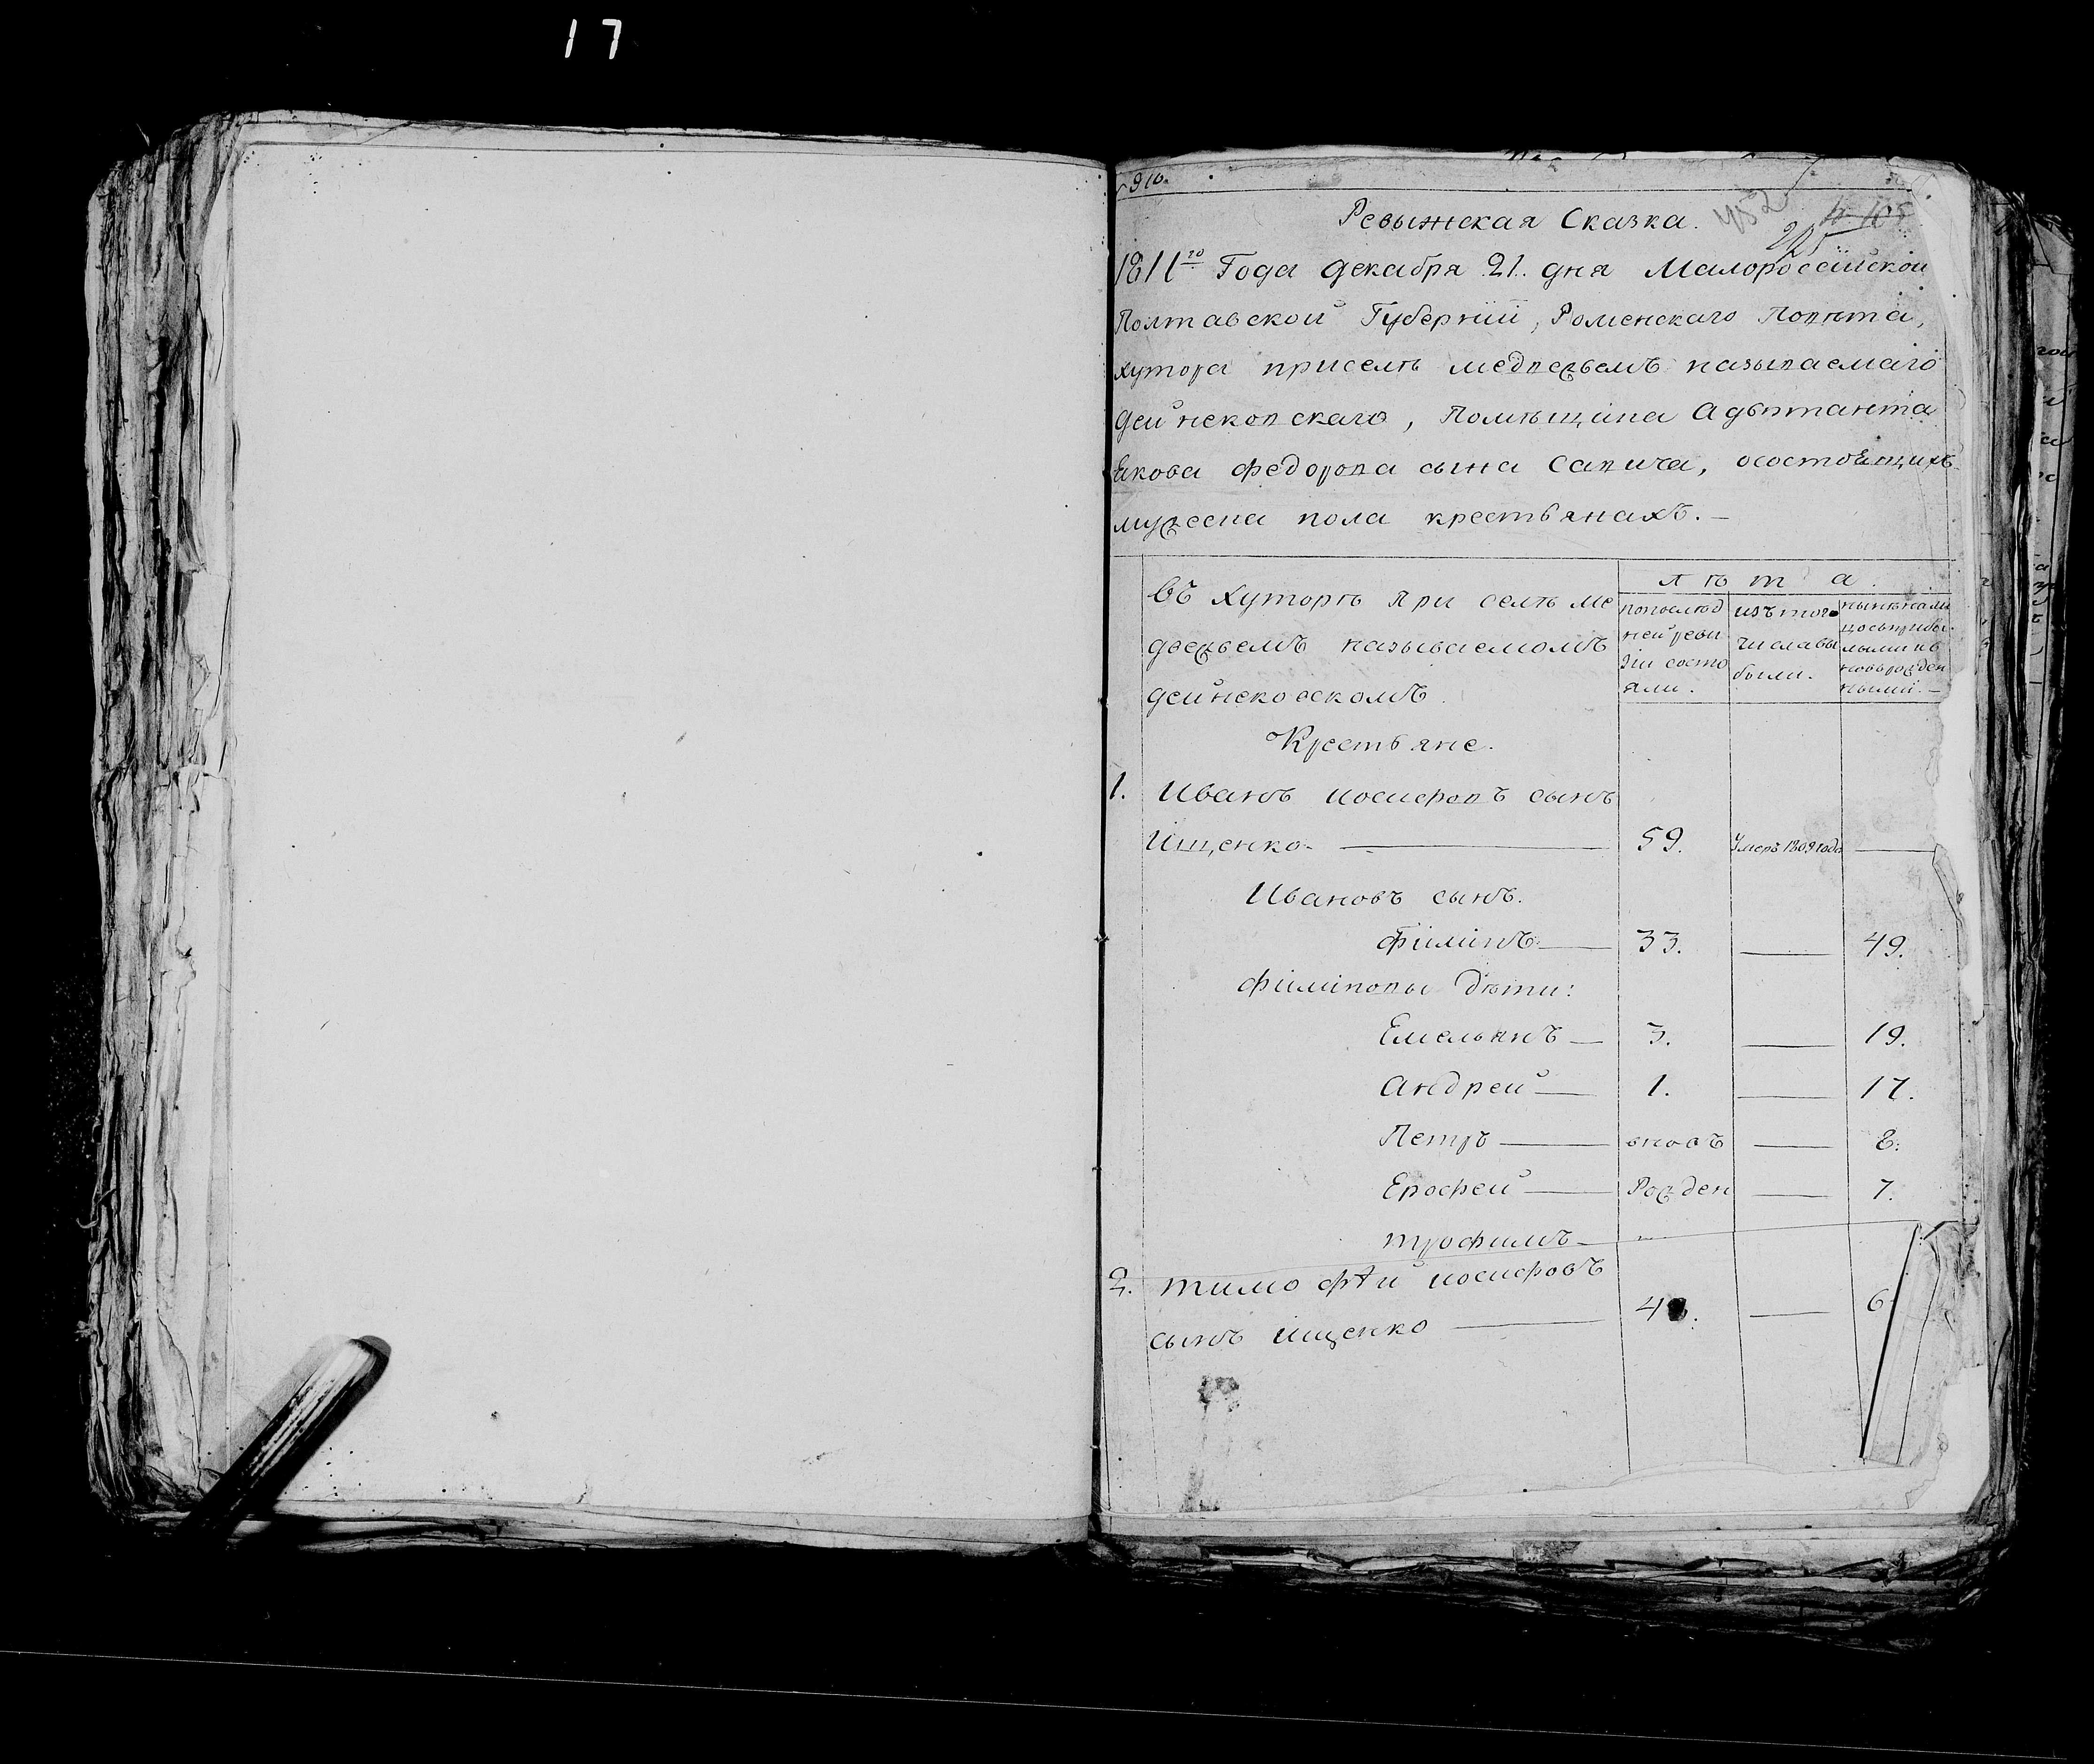 17
910.
452
Ревыжская Сказка.
225
1811го Года декабря 21. дня Малороссійской
Полтавской Губерніи, Роменскаго Повѣта,
хутора приселѣ медвежьемъ называемаго
Дейнековскаго, Помѣщика Адъютанта
Якова федорова сына Савича, осостоящихъ
мужеска пола крестьянахъ.—
въ хуторѣ при селѣ ме
двежьемъ называемомъ
дейнековскомъ.
лѣта.
попослѣд
ней реви
зіи состо
яли.
изътого
числа вы
были.
Крестьяне.
1. Иванъ иосифовъ сынъ
Ищенко — 59. Умеръ 1809 года —
Ивановъ сынъ.
Филипъ — 33. — 49.
филиповы дѣти:
Емельянъ — 3. — 19.
Андрей — 1. — 17.
Петръ — вновъ — 8.
Ерофей — Рожден — 7.
трофимъ —
2. тимофѣй иосифовъ
сынъ ищенко — — 6